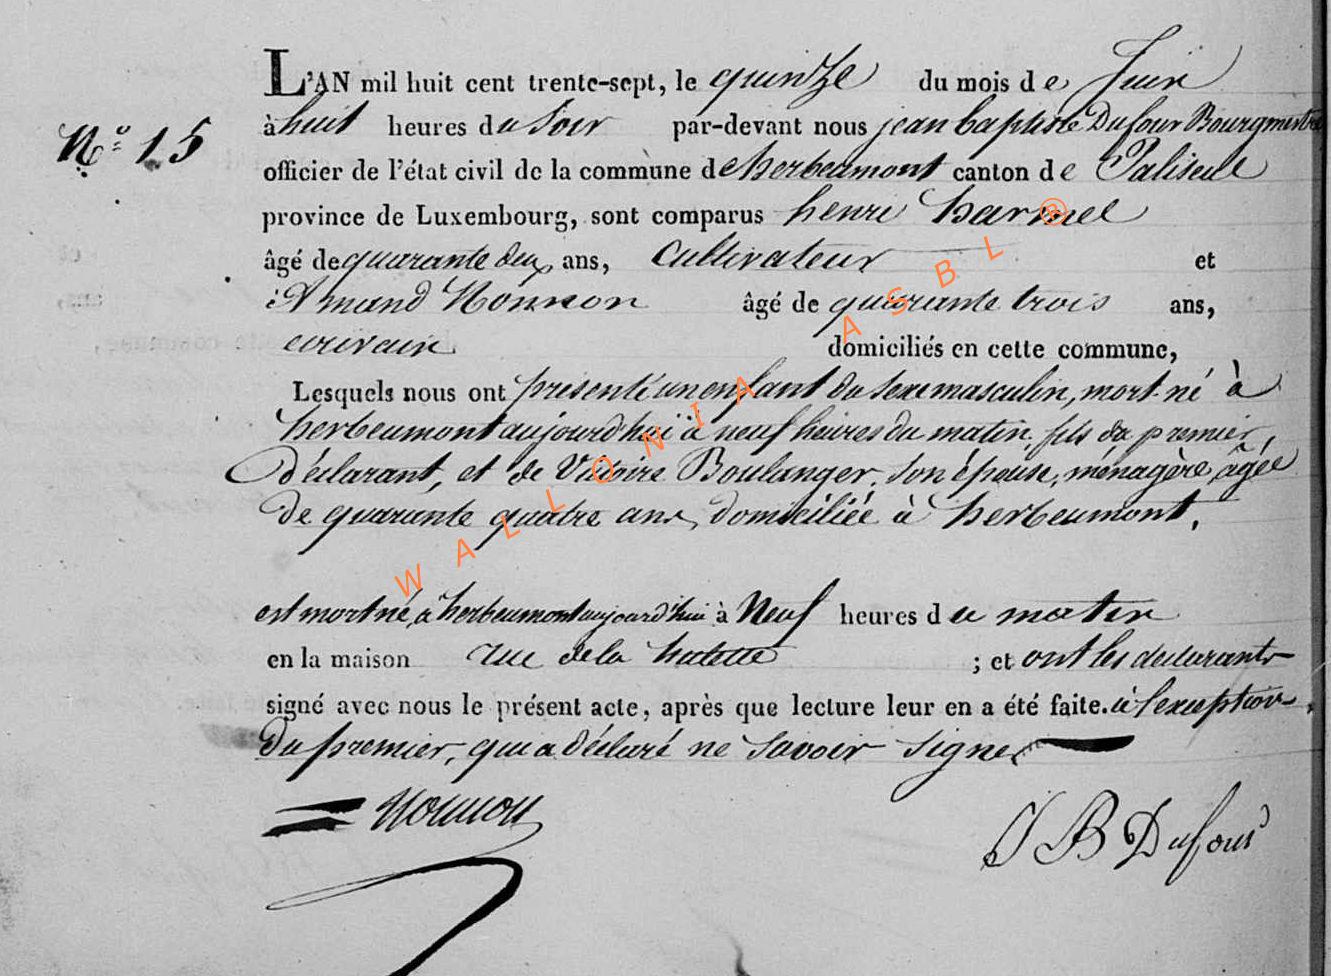 L'AN mil huit cent trente-sept, le quinze du mois de Juin
N° 15
à huit heures du soir par-devant nous jean baptiste Dufour Bourgmestre
officier de l'état civil de la commune de herbeumont canton de Paliseul
province de Luxembourg, sont comparus henri harmel
âgé de quarante deux ans, Cultivateur et
Armand Nonnon âgé de quarante trois ans,
ecrivain domiciliés en cette commune,
Lesquels nous ont présenté un enfant du sexe masculin, mort-né à
herbeumont aujourd'hui à neuf heures du matin, fils du premier,
déclarant, et de Victoire Boulanger, son épouse, ménagère, âgée
de quarante quatre ans, domiciliée à herbeumont.
est mort né, à herbeumont aujourd'hui à Neuf heures du matin
en la maison rue de la hulette ; et ont les declarants
signé avec nous le présent acte, après que lecture leur en a été faite. à l'exeption
du premier, qui a déclaré ne savoir signer
Nonnon
J B Dufour
WALLONIA ASBL ®